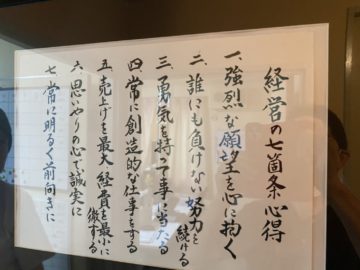 経営の七箇条心得
一、強烈な願望を心に抱く
二、誰にも負けない努力を続ける
三、勇気を持って事に当たる
四、常に創造的な仕事をする
五、売上げを最大経費を最小に徹する
六、思いやりの心で誠実に
七、常に明るく前向きに